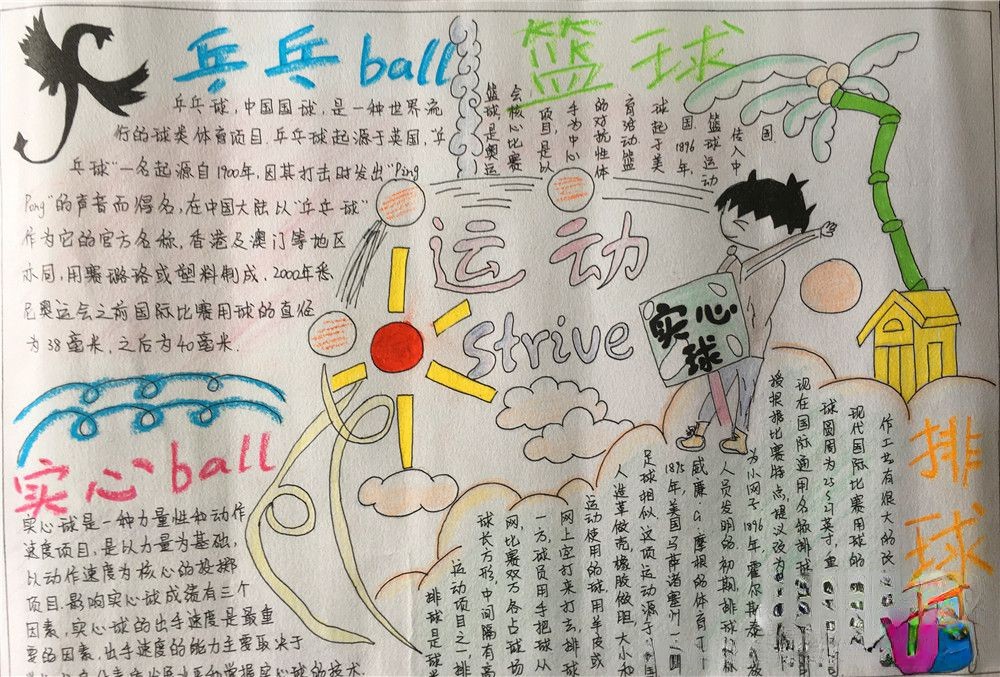 乒乓ball
乒乓球,中国国球,是一种世界流
行的球类体育项目.乒乓球起源于英国,"乒
乓球"一名起源自1900年,因其打击时发出"Ping
Pong"的声音而得名,在中国大陆以"乒乓球"
作为它的官方名称,香港及澳门等地区
亦同,用赛璐珞或塑料制成.2000年悉
尼奥运会之前国际比赛用球的直径
为38毫米,之后为40毫米.
篮球
篮球,是奥运
会核心比赛
项目,是以
手为中心
的对抗性体
育活动.篮
球起于美
国.1896年,
篮球运动
传入中
国.
运动
strive
实心
球
实心ball
实心球是一种力量性和动作
速度项目,是以力量为基础,
以动作速度为核心的投掷
项目.影响实心球成绩有三个
因素,实心球的出手速度是最重
要的因素,出手速度的能力主要取决于
掌握实心球的技术.
排球
排球是球
运动项目之一,排
球长方形,中间隔有高
网,比赛双方各占球场
一方,球员用手把球从
网上空打来打去,排球
运动使用的球,用羊皮或
人造革做壳,橡胶做胆,大小和
足球相似.这项运动源于
1895年,美国马萨诸塞州
威廉·G·摩根的体育
人员发明的.初期,排球
为小网子.1896年,霍尔斯泰
授根据比赛特点,提议改为
现在国际通用名称排球
球圆周为25~27英寸,重
现代国际比赛用球的
作工艺有很大的改